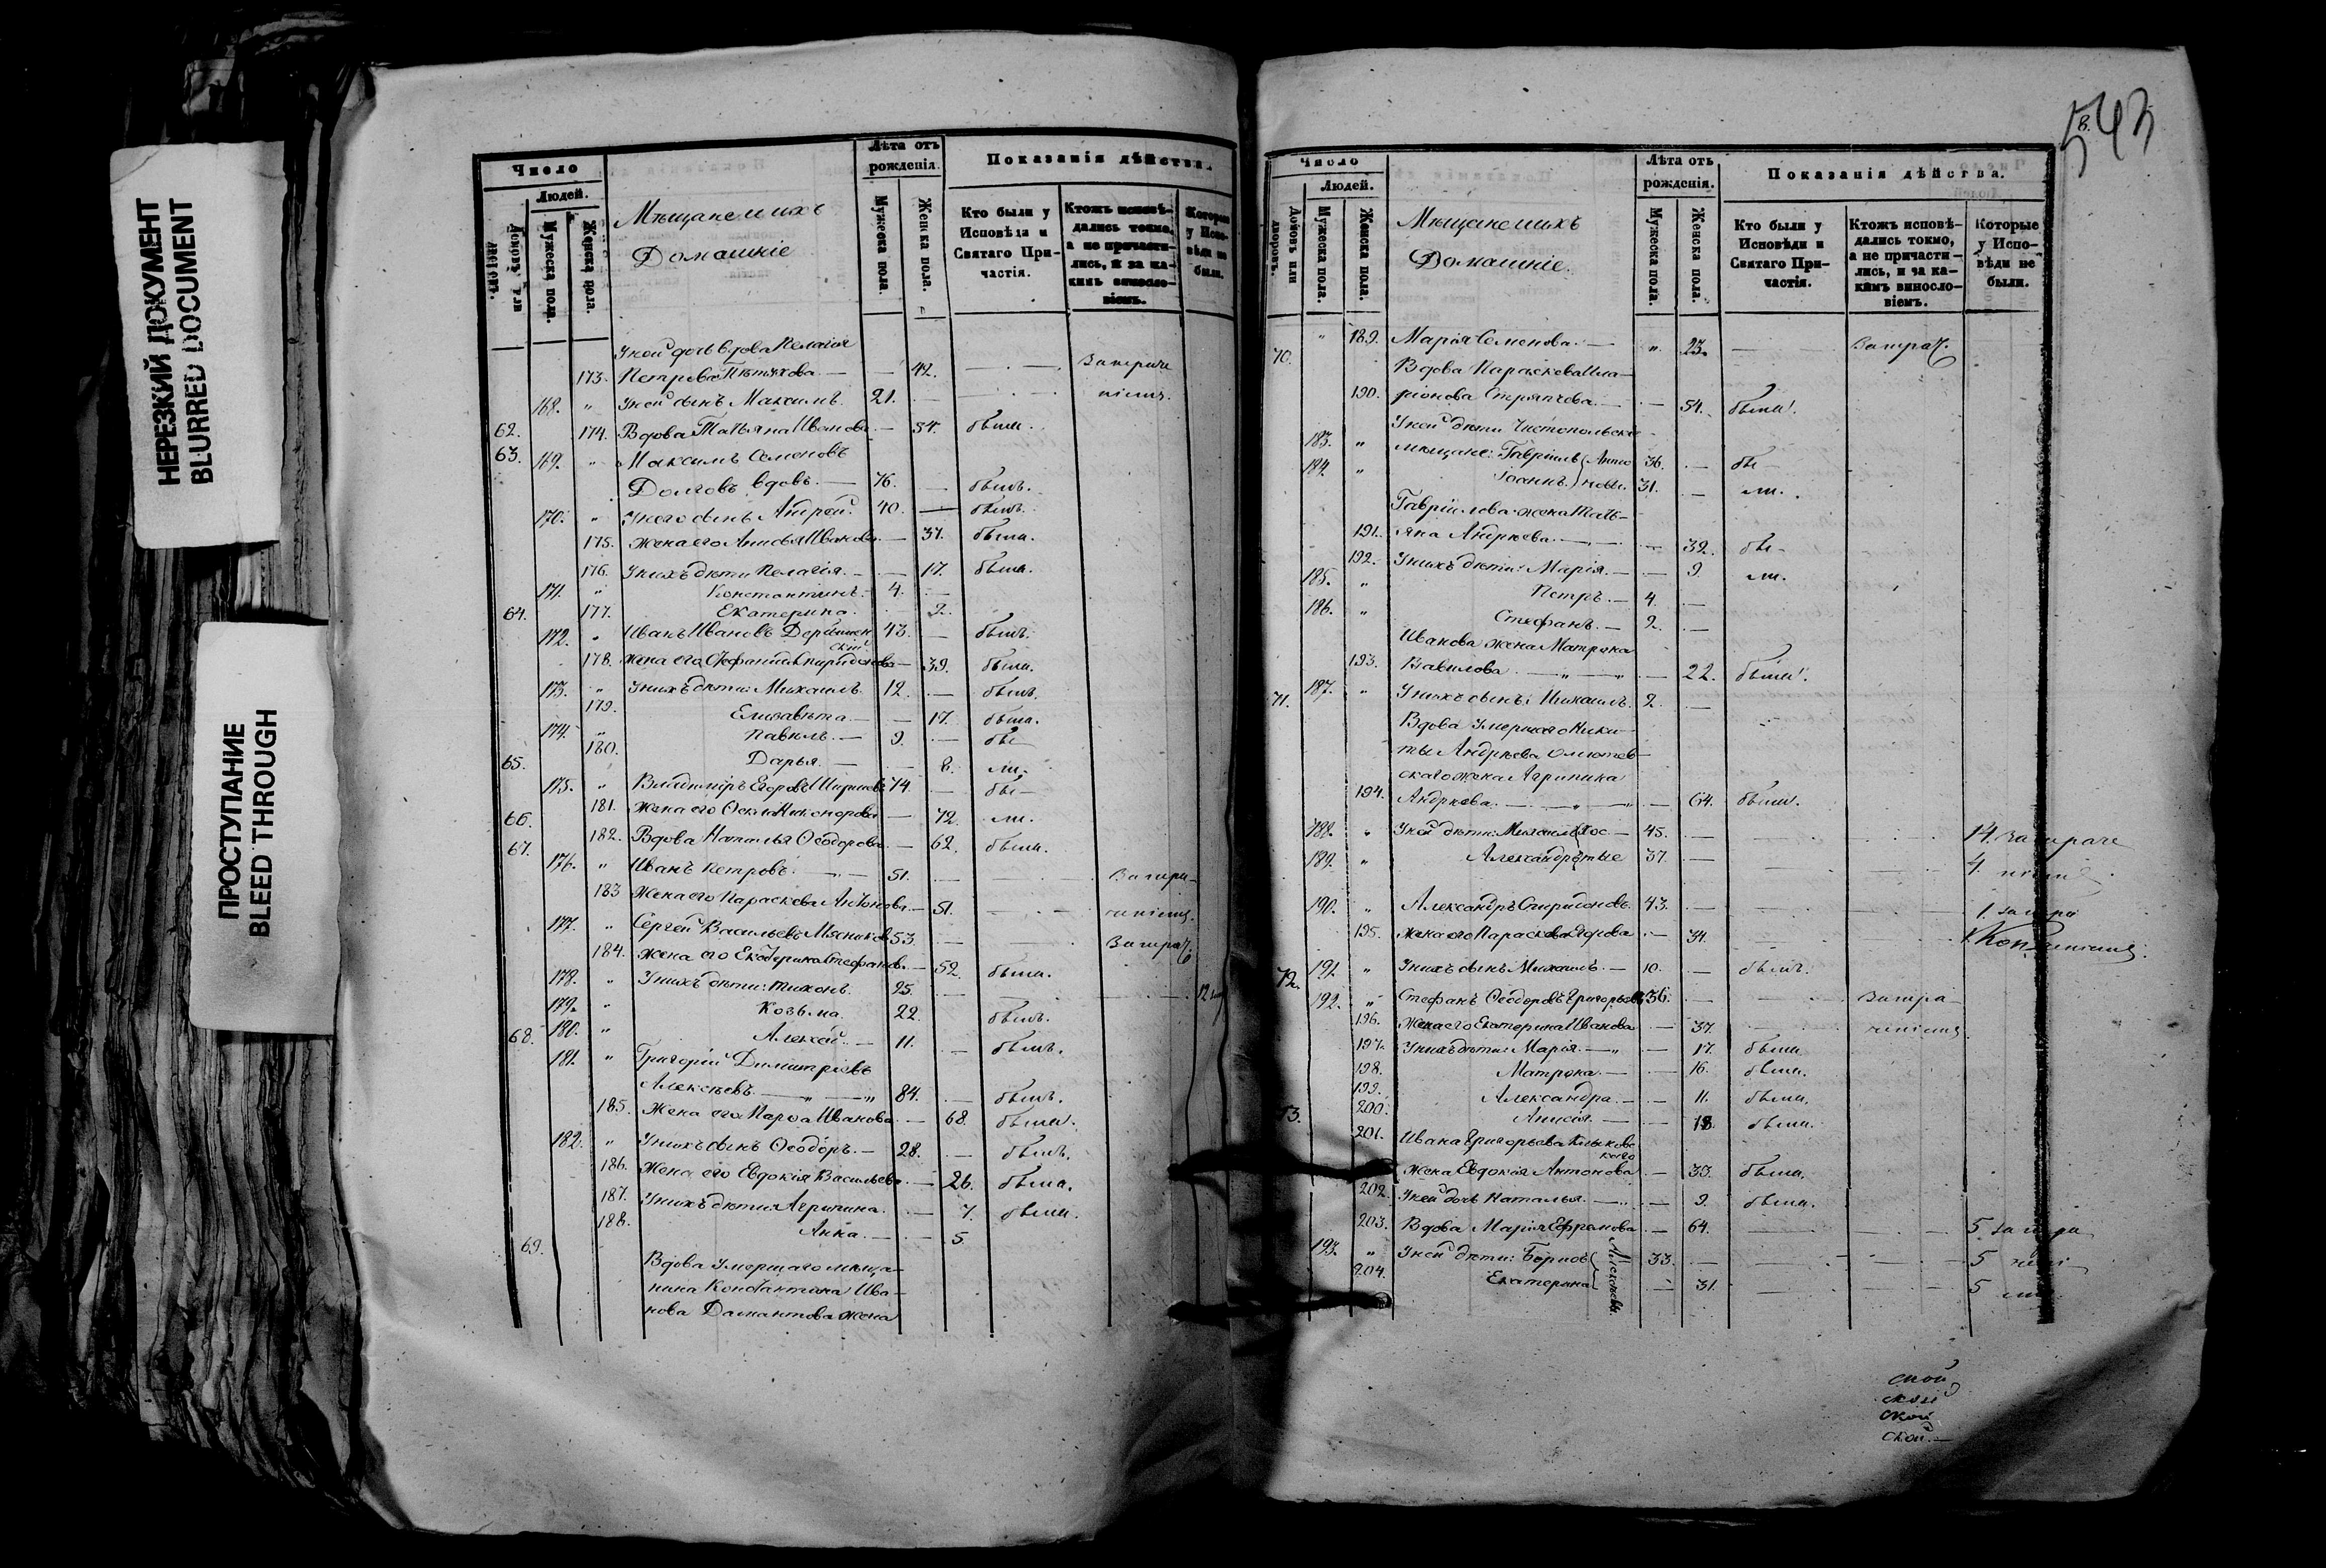 НЕРЕЗКИЙ ДОКУМЕНТ
BLURRED DOCUMENT
ПРОСТУПАНИЕ
BLEED THROUGH
Число
Людей.
Домовъ или дворовъ.
Мужеска пола.
Женска пола.
Мѣщане и ихъ
Домашніе
Лѣта отъ рожденія.
Мужеска пола.
Женска пола.
Показанія дѣйства.
Кто были у Исповѣди и Святаго Причастія.
Ктожъ исповѣдались токмо, а не причастились, и за какимъ винословіемъ.
Которые у Исповѣди не были.
У ней дочь вдова Пелагія
173. Петрова — — 42. — —
168. " У ней сынъ Максимъ. 21.
62. 174. Вдова Татьяна Иванова — 54. была.
63. 169. " Максимъ Семеновъ
Долговъ вдовъ. — 76. — былъ.
170. " У него сынъ Андрей. 40. — былъ.
175. Жена его Анисья Иванова — 37. была.
176. У нихъ дѣти Пелагія. — — 17. была.
171. " Константинъ. — 4. —
177. Екатерина. — 2.
64. 172. " Иванъ Ивановъ 43. — былъ.
178. Жена его Стефанида Спиридонова — 39. была.
173. " У нихъ дѣти: Михаилъ. 12. — былъ.
179. Елизавета. — — 17. была.
174. " Павелъ. — 9. — бы-
180. Дарья. — — 8. ли.
65. 175. " Владиміръ Егоровъ 74. — бы-
181. Жена его Никонорова — 72. ли.
66. 182. Вдова Наталья Ѳеодорова. — 62. была.
67. 176. " Иванъ Петровъ. — 51. —
183 Жена его Параскева Антонова. — 51. —
177. " Сергей Васильевъ Мясниковъ 53. —
184. Жена его Екатерина Стефанова. — 52. была.
178. " У нихъ дѣти: Тихонъ. 25. —
179. " Козьма. 22. былъ.
180. " Алексѣй. — 11. — былъ.
68. 181. " Григорій Димитріевъ
Алексѣевъ. — " — " 84. — былъ.
185. Жена его Марѳа Иванова. — 68. была.
182. " У нихъ сынъ Ѳеодоръ. — 28. — былъ.
186. Жена его Евдокія Васильева. — 26. была.
187. У нихъ дѣти: Агрипина. — 7. была.
188. Анна. — — 5.
69. Вдова умершаго мѣща-
нина Константина Ива-
нова жена
543
Число
Людей.
Домовъ или дворовъ.
Мужеска пола.
Женска пола.
Мѣщане и ихъ
Домашніе.
Лѣта отъ рожденія.
Мужеска пола.
Женска пола.
Показанія дѣйства.
Кто были у Исповѣди и Святаго Причастія.
Ктожъ исповѣдались токмо, а не причастились, и за какимъ винословіемъ.
Которые у Исповѣди не были.
" 189. Марія Семенова. — " 23. —
70. Вдова Параскева Ила-
190. ріонова — — 54. была.
У ней дѣти Чистопольскіе
183. " мѣщане: Гавріилъ 36. — бы-
184. " Іоаннъ. 31. — ли.
Гавріилова жена Тать-
191. яна Андреева. — — 32. бы-
192. У нихъ дѣти: Марія. — — 9. ли.
185. " Петръ. — 4. —
186. " Стефанъ. — 2. —
Иванова жена Матрона
193. Вавилова. — " — " — 22. была.
187. " У нихъ сынъ: Михаилъ. 2. —
71. Вдова умершаго Ники-
ты Андреева
скаго жена Агрипина
194. Андреева. — " — " — 64. была.
188. " У ней дѣти: Михаилъ — 45. —
189. " Александръ 37. —
190. " Александръ Спиридоновъ. 43. —
195. Жена его Параскева Егорова — 34. —
191. " У нихъ сынъ Михаилъ. — 10. — былъ.
72. 192. " Стефанъ Ѳеодоровъ Григорьевъ 36. —
196. Жена его Екатерина Иванова — 37. —
197. У нихъ дѣти: Марія. — " — 17. была
198. Матрона. — — 16. была.
199. Александра. — — 11. была.
200. Анисія. — — была.
73. 201. Ивана Григорьева
жена Евдокія Антонова — 33. была.
202. У ней дочь Наталья. — " — 9. была.
203. Вдова Марія — 64. —
193. " У ней дѣти: 33. —
204. Екатерина — 31. —
ской
ской
ской
ской. —